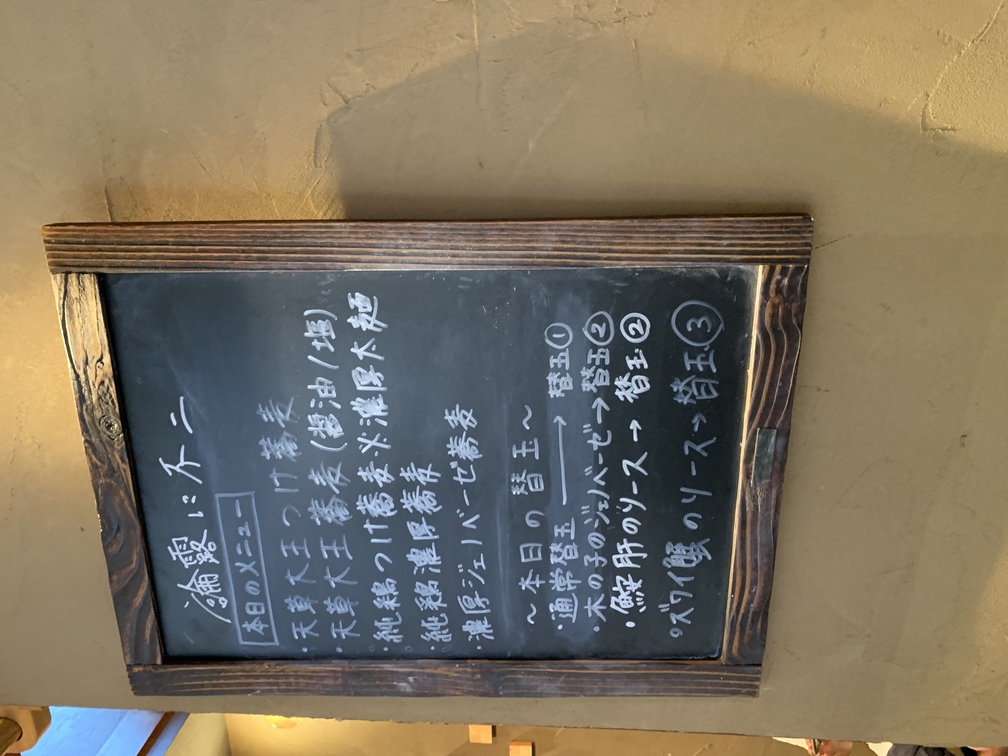 論露に不二
本日のメニュー
・天草大王つけ蕎麦
・天草大王蕎麦(醤油/塩)
・純鶏つけ蕎麦※濃厚太麺
・純鶏濃厚蕎麦
・濃厚ジェノベーゼ蕎麦
～本日の替玉～
・通常替玉→替玉①
・木の子のジェノベーゼ→替玉②
・鮟肝のソース→替玉②
・ズワイ蟹のソース→替玉③